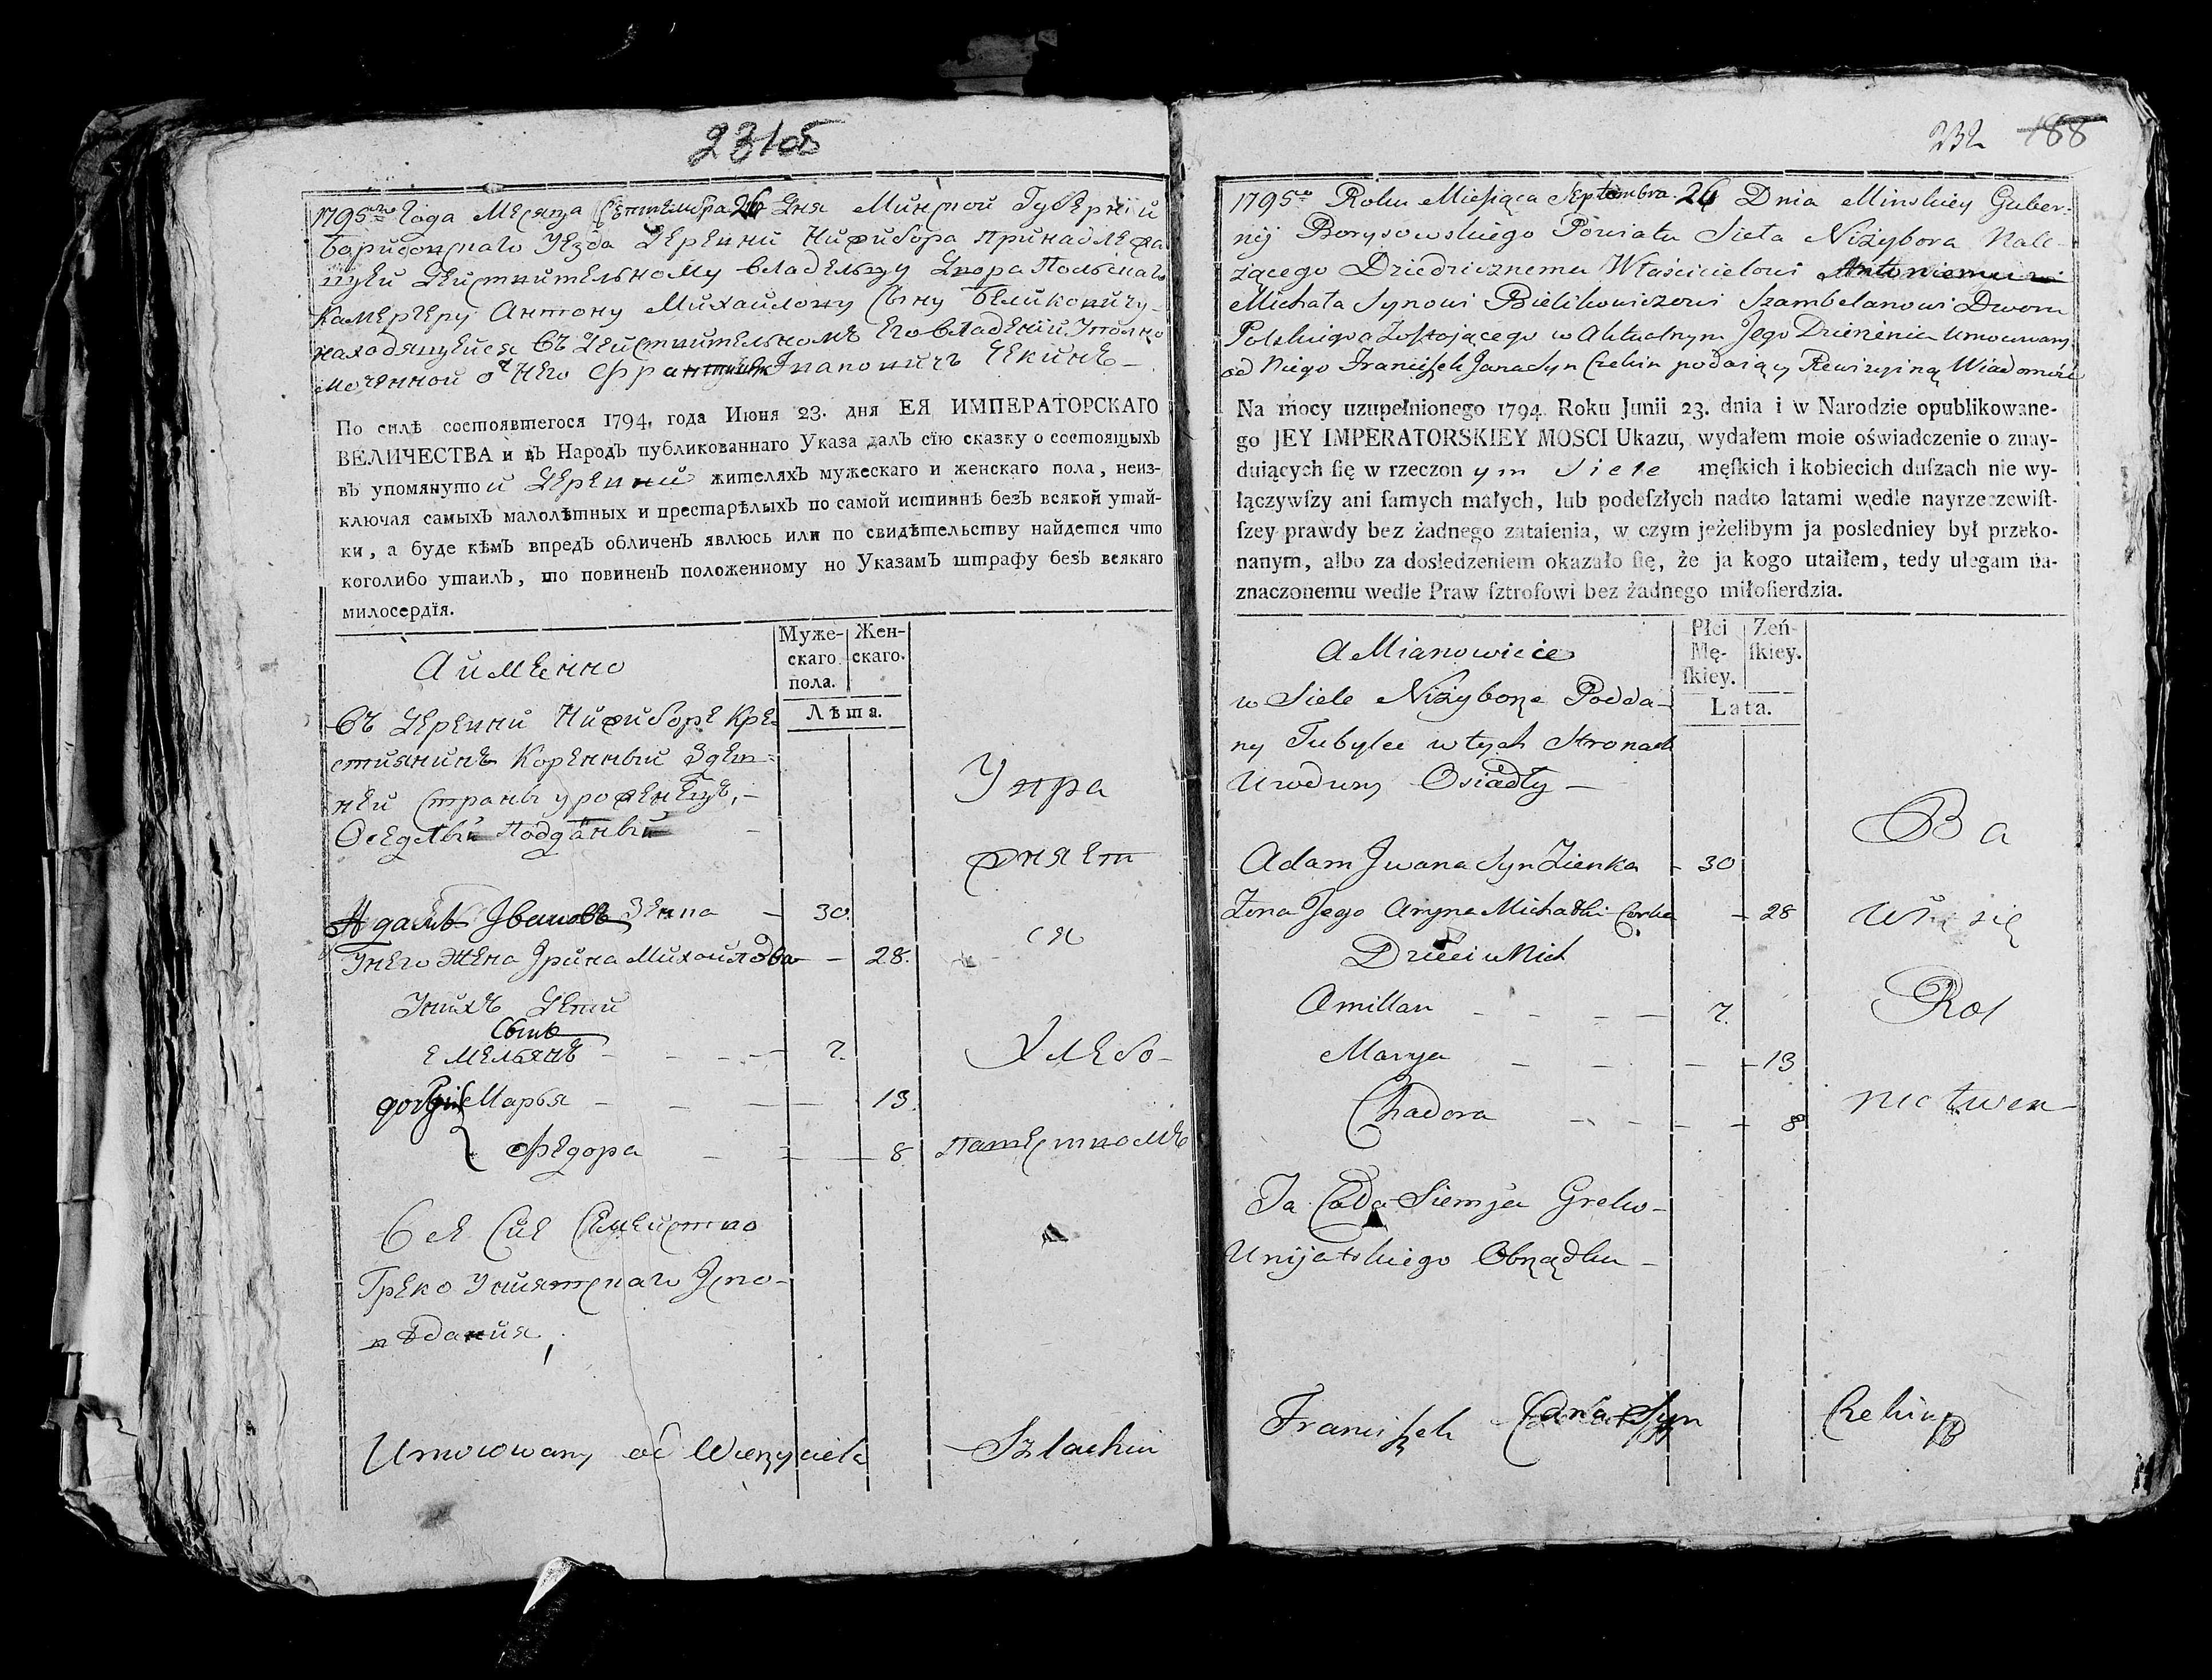 231об
1795го Года Месяца Сентембра 26 Дня Минской Губернии
Борисовскаго Уезда Деревни Нижибора принадлежа
щуей Действительному владельцу Двора Польскаго
Камергеру Антону Михайлову Сыну Беликовичу
находящуейся въ Действительномъ Его владении Уполно
моченной от Него Францишк Ивановичъ Чекинъ
По силѣ состоявшегося 1794, года Июня 23. дня ЕЯ ИМПЕРАТОРСКАГО
ВЕЛИЧЕСТВА и въ Народъ публикованнаго Указа далъ сїю сказку о состоящыхъ
въ упомянутой Деревни жителяхъ мужескаго и женскаго пола, неиз-
ключая самыхъ малолѣтныхъ и престарѣлыхъ по самой истиннѣ безъ всякой утай-
ки, а буде кѣмъ впредь обличенъ явлюсь или по свидѣтельству найдется что
коголибо утаилъ, то повиненъ положенному по Указамъ штрафу безъ всякаго
милосердїя.
А именно
Муже-
скаго
пола.
Жен-
скаго.
Лѣта.
въ Деревни Нижиборе Кре-
стиянинъ Коренный Здеш-
ней Страны уроженецъ,
Оседлый Подданый
Адамъ Ивановъ Зенка 30.
У него жена Ирина Михайлова 28.
У нихъ Дети
Сынъ
Емельянъ 7.
дочери Марья 13.
Федора 8.
Упра
жняет
ся
Хлебо-
паществомъ
Все Сие Семейство
Греко Униятскаго Испо-
ведания,
Umocowany od Wierzyciela Szlachcic
232 188
1795go Roku Miesiąca Septembra 26 Dnia Minskiey Guber:
nij Borysowskiego Powiatu Sieła Niżybora Nale-
żącego Dziedzicznemu Właścicielowi Antoniemu
Michała Synowi Bielikowiczowi Szambelanowi Dworu
Polskiego a Zostającego w Aktualnym Jego Dzierżeniu Umocowany
od Niego Franciszek Jana Syn Czekin podaiący Rewizyiną Wiadomość
Na mocy uzupełnionego 1794 Roku Junii 23. dnia i w Narodzie opublikowane-
go JEY IMPERATORSKIEY MOSCI Ukazu, wydałem moie oświadczenie o znay-
duiących ſię w rzeczonym Siele męſkich i kobiecich duſzach nie wy-
łączywſzy ani ſamych małych, lub podeſzłych nadto latami wedle nayrzeczewiſt-
ſzey prawdy bez żadnego zataienia, w czym jeżelibym ja posledniey był przeko-
nanym, albo za dosledzeniem okazało ſię, że ja kogo utaiłem, tedy ulegam na-
znaczonemu wedle Praw ſztroſowi bez żadnego miłoſierdzia.
A Mianowicie
Płci
Mę-
ſkiey.
Zeń-
ſkiey.
Lata.
w Siele Niżyborze Podda-
ny Tubylec w tych Stronach
Urodzony Osiadły
Adam Jwana Syn Zienka 30
Zona Jego Aryna Michałki Corka 28
Dzieci u Nich
Amillan 7.
Marya 13
Chadora 8
Ba
wi się
Rol
nictwem
Ta Cała Siemja Greko-
Unijatskiego Obrządku
Franciszek Jana Syn Czekin